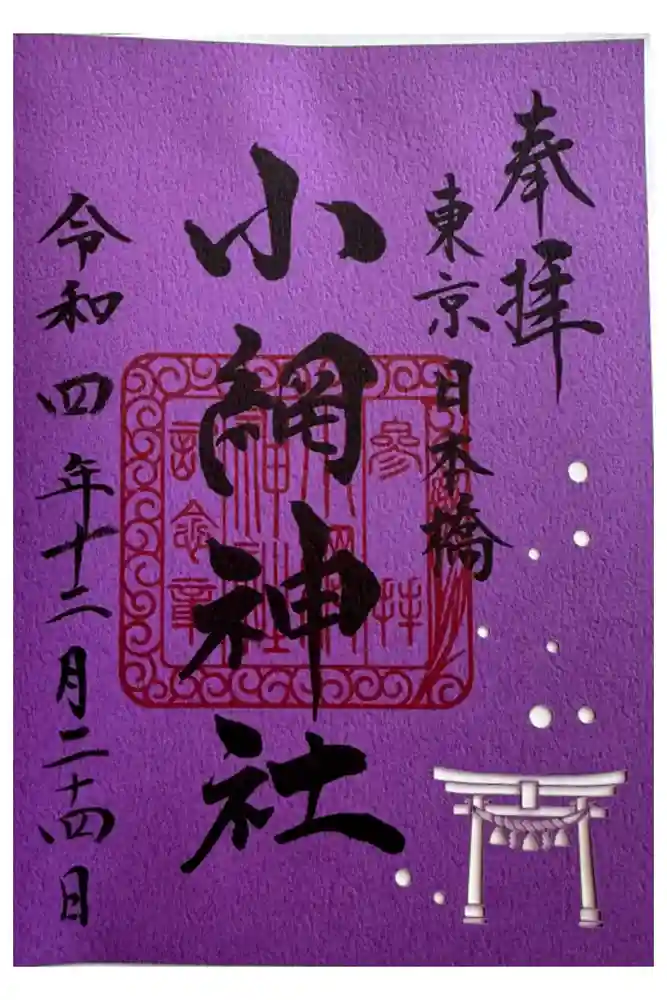 奉拝
東京日本橋
小網神社
参拝
小網
神社
記念章
令和四年十二月二十四日